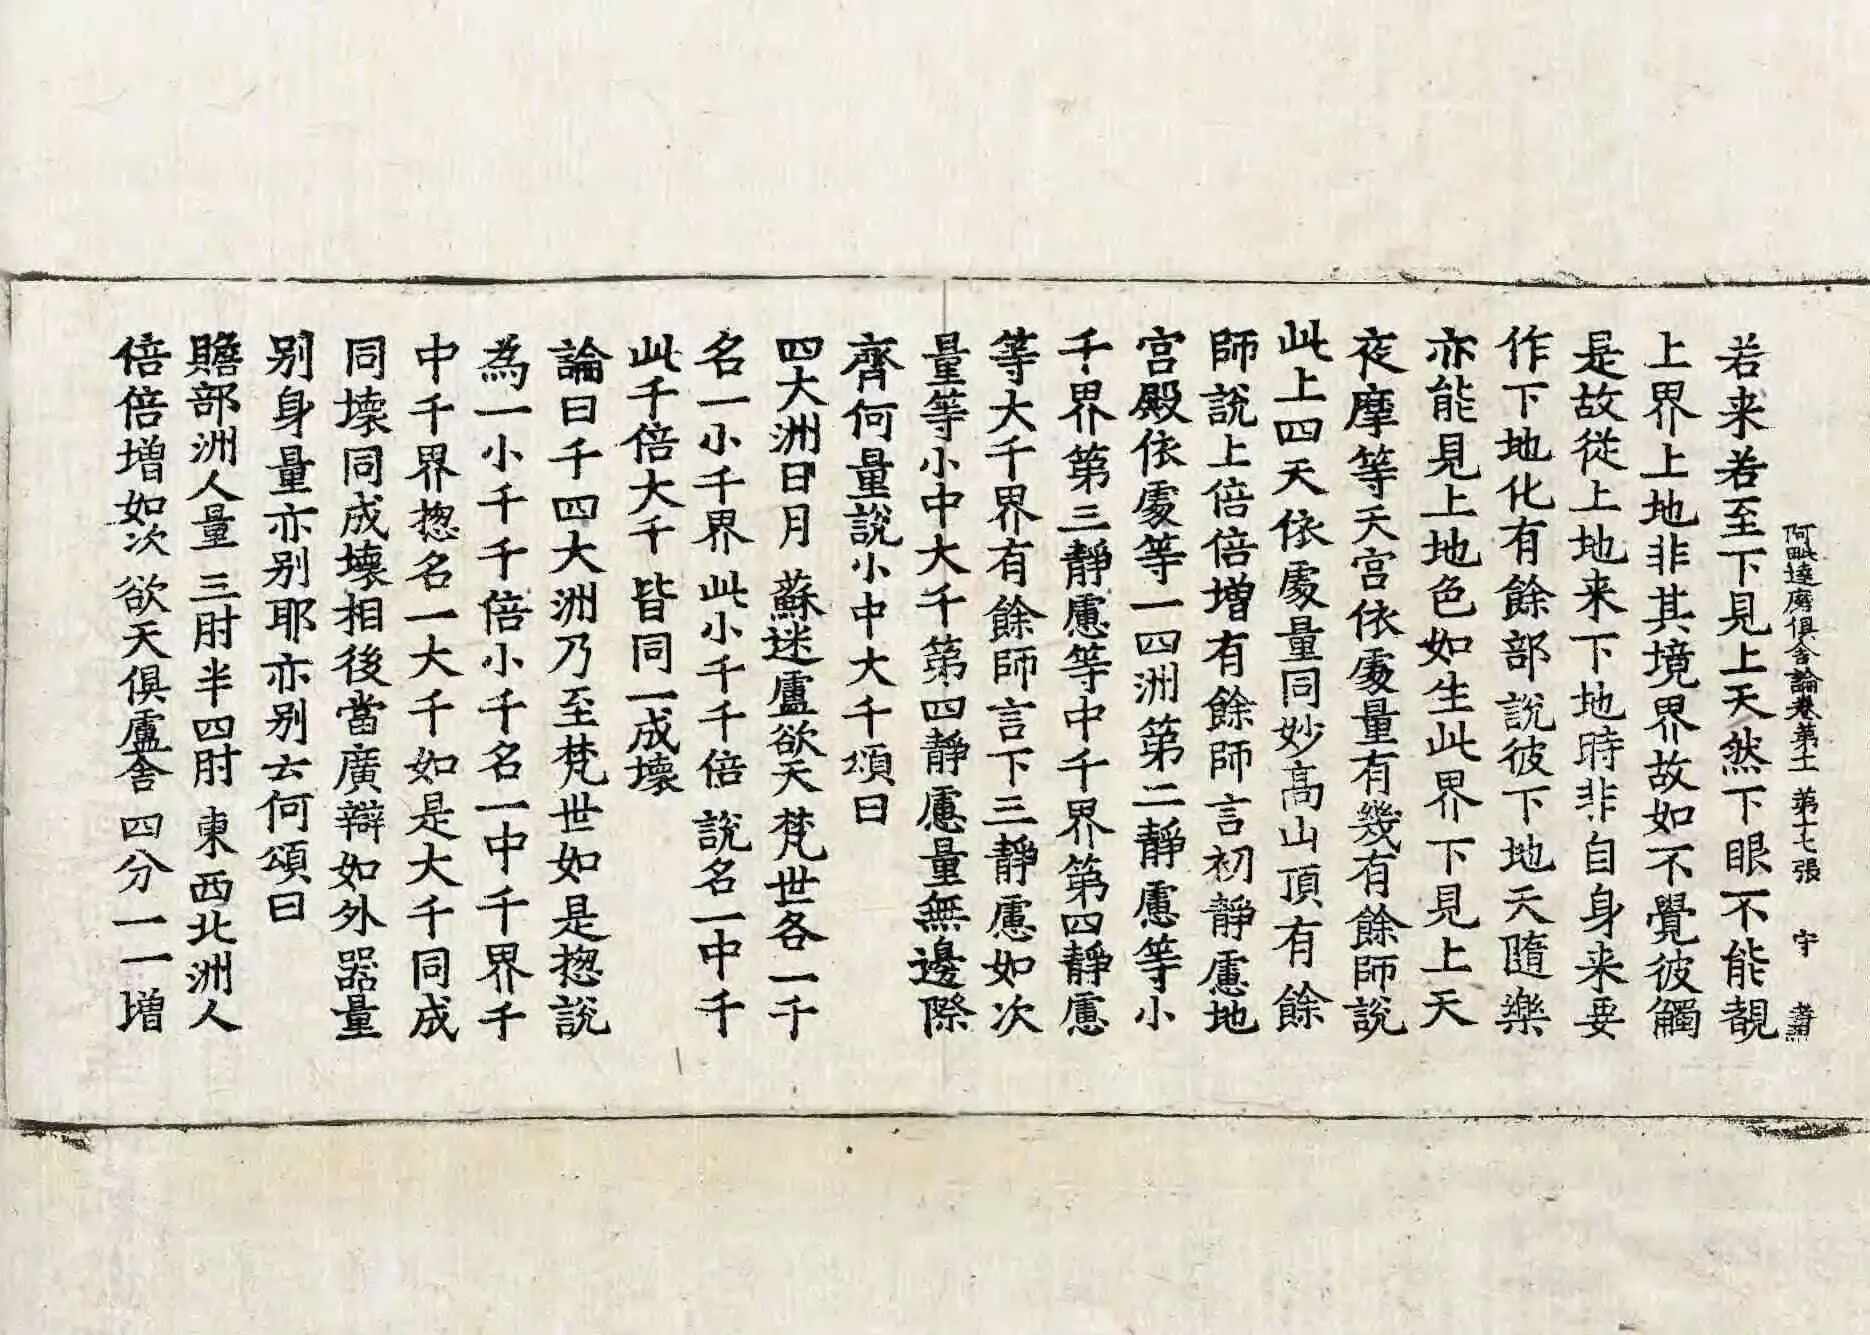 阿毗達磨俱舍論卷第十一 第十七張 宇
若来若至下見上天然下眼不能覩
上界上地非其境界故如不覺彼觸
是故從上地来下地時非自身来要
作下地化有餘部說彼下地天隨樂
亦能見上地色如生此界下見上天
夜摩等天宫依處量有幾有餘師說
此上四天依處量同妙高山頂有餘
師說上倍倍增有餘師言初靜慮地
宫殿依處等一四洲第二靜慮等小
千界第三靜慮等中千界第四靜慮
等大千界有餘師言下三靜慮如次
量等小中大千第四靜慮量無邊際
齊何量說小中大千頌曰
四大洲日月 蘇迷盧欲天 梵世各一千
名一小千界 此小千千倍 說名一中千
此千倍大千 皆同一成壞
論曰千四大洲乃至梵世如是揔說
為一小千千倍小千名一中千界千
中千界揔名一大千如是大千同成
同壞同成壞相後當廣辯如外器量
别身量亦别耶亦别云何頌曰
贍部洲人量 三肘半四肘 東西北洲人
倍倍增如次 欲天俱盧舍 四分一一增